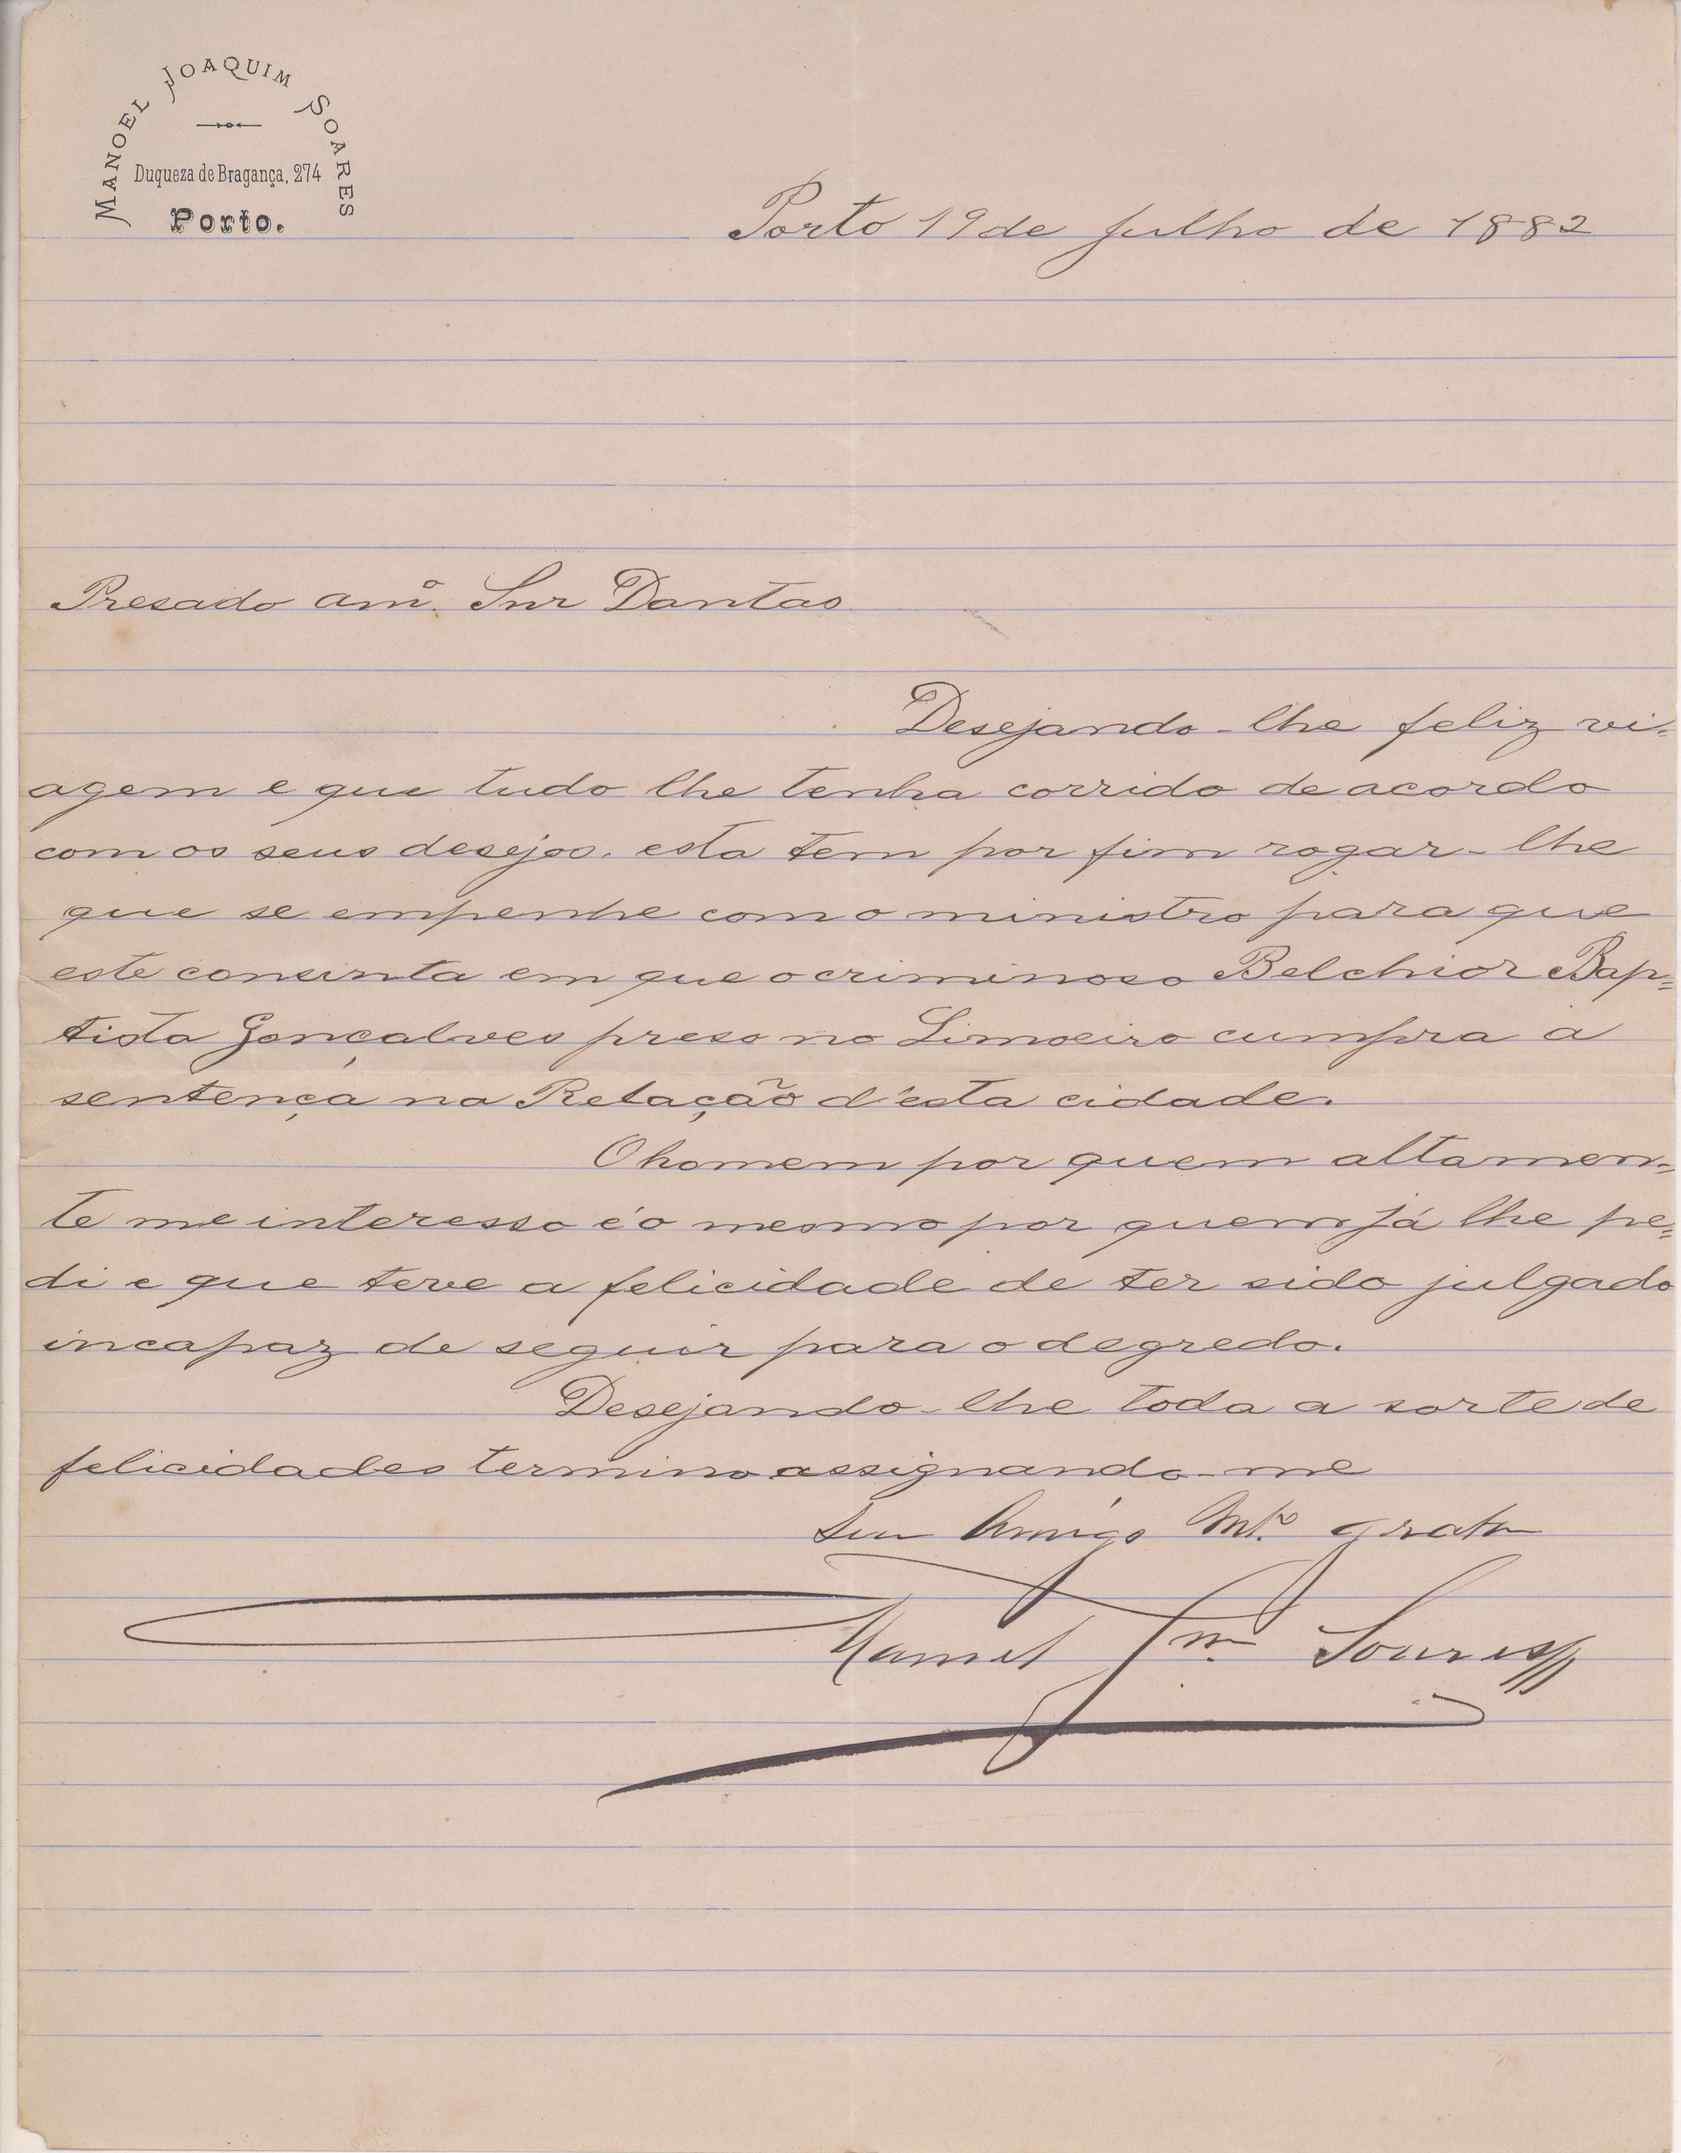 MANOEL JOAQUIM SOARES
Duqueza de Bragança, 274
Porto.
Porto 19 de Julho de 1882
Presado amº. Snr Dantas
Desejando-lhe feliz vi-
agem e que tudo lhe tenha corrido de acordo
com os seus desejos. esta tem por fim rogar-lhe
que se empenhe com o ministro para que
este consinta em que o criminoso Belchior Bap=
tista Gonçalves preso no Limoeiro cumpra a
sentença na Relação d'esta cidade.
O homem por quem altamen=
te me interesso é o mesmo por quem já lhe pe=
di e que teve a felicidade de ter sido julgado
incapaz de seguir para o degredo.
Desejando-lhe toda a sorte de
felicidades termino assignando-me
Seu Amigo Mtº. grato
Manoel Jm. Soares